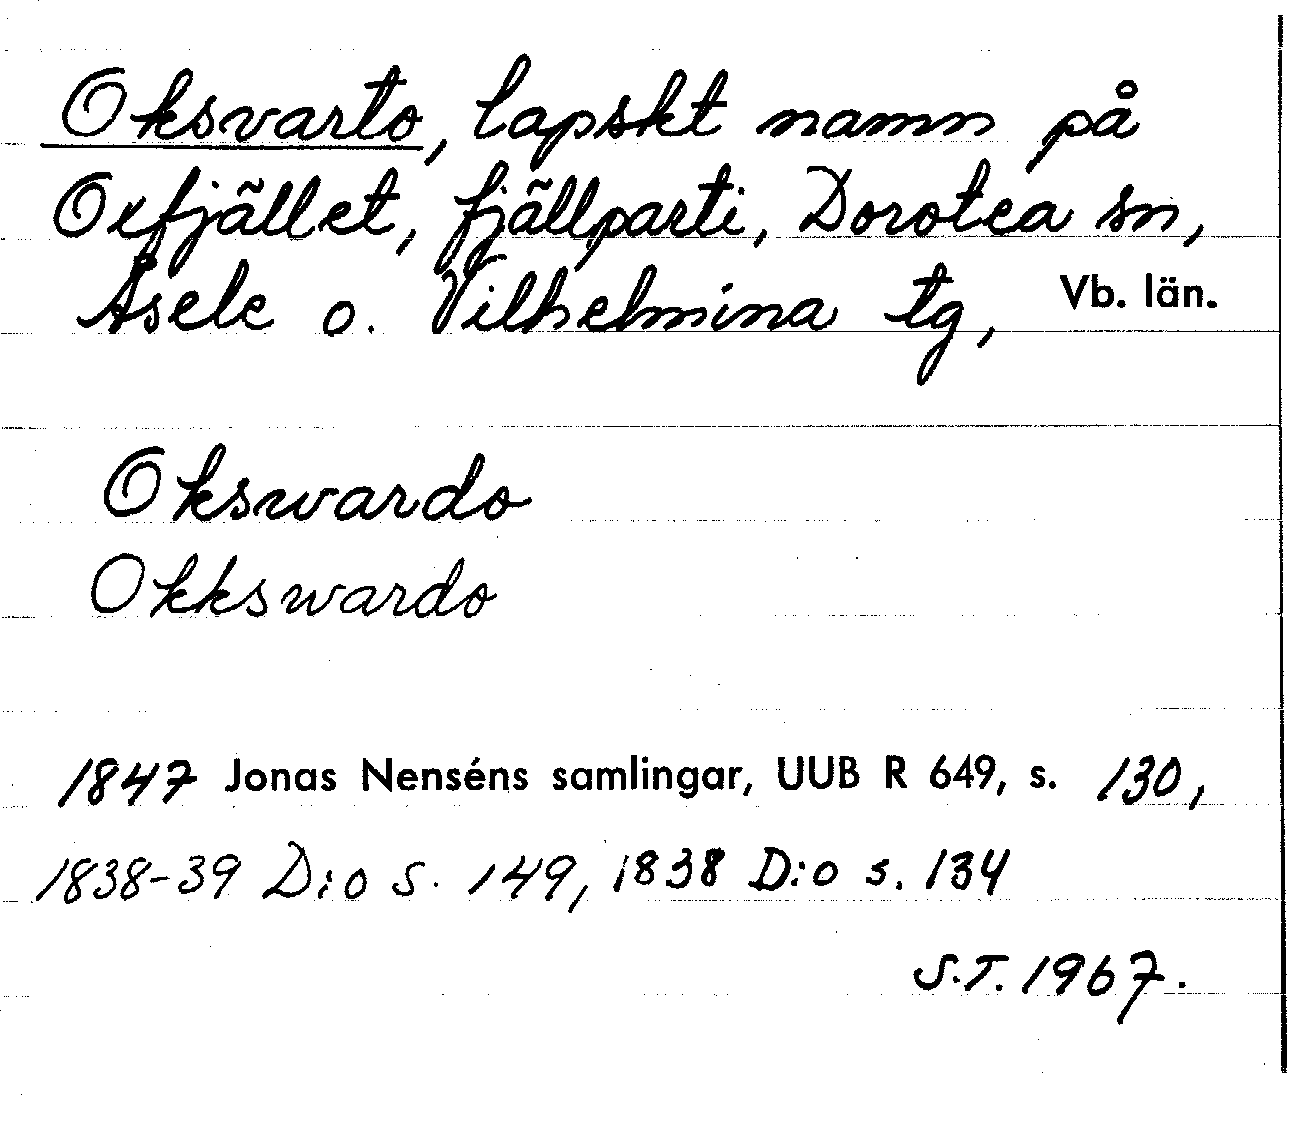 Oksvarto, lapskt namn på
Oxfjället, fjällparti, Dorotea sn,
Åsele o. Vilhelmina tg, Vb. län.
Okswardo
Okkswardo
1847 Jonas Nenséns samlingar, UUB R 649, s. 130,
1838-39 D:o s. 149, 1838 D:o s. 134
S.T. 1967.